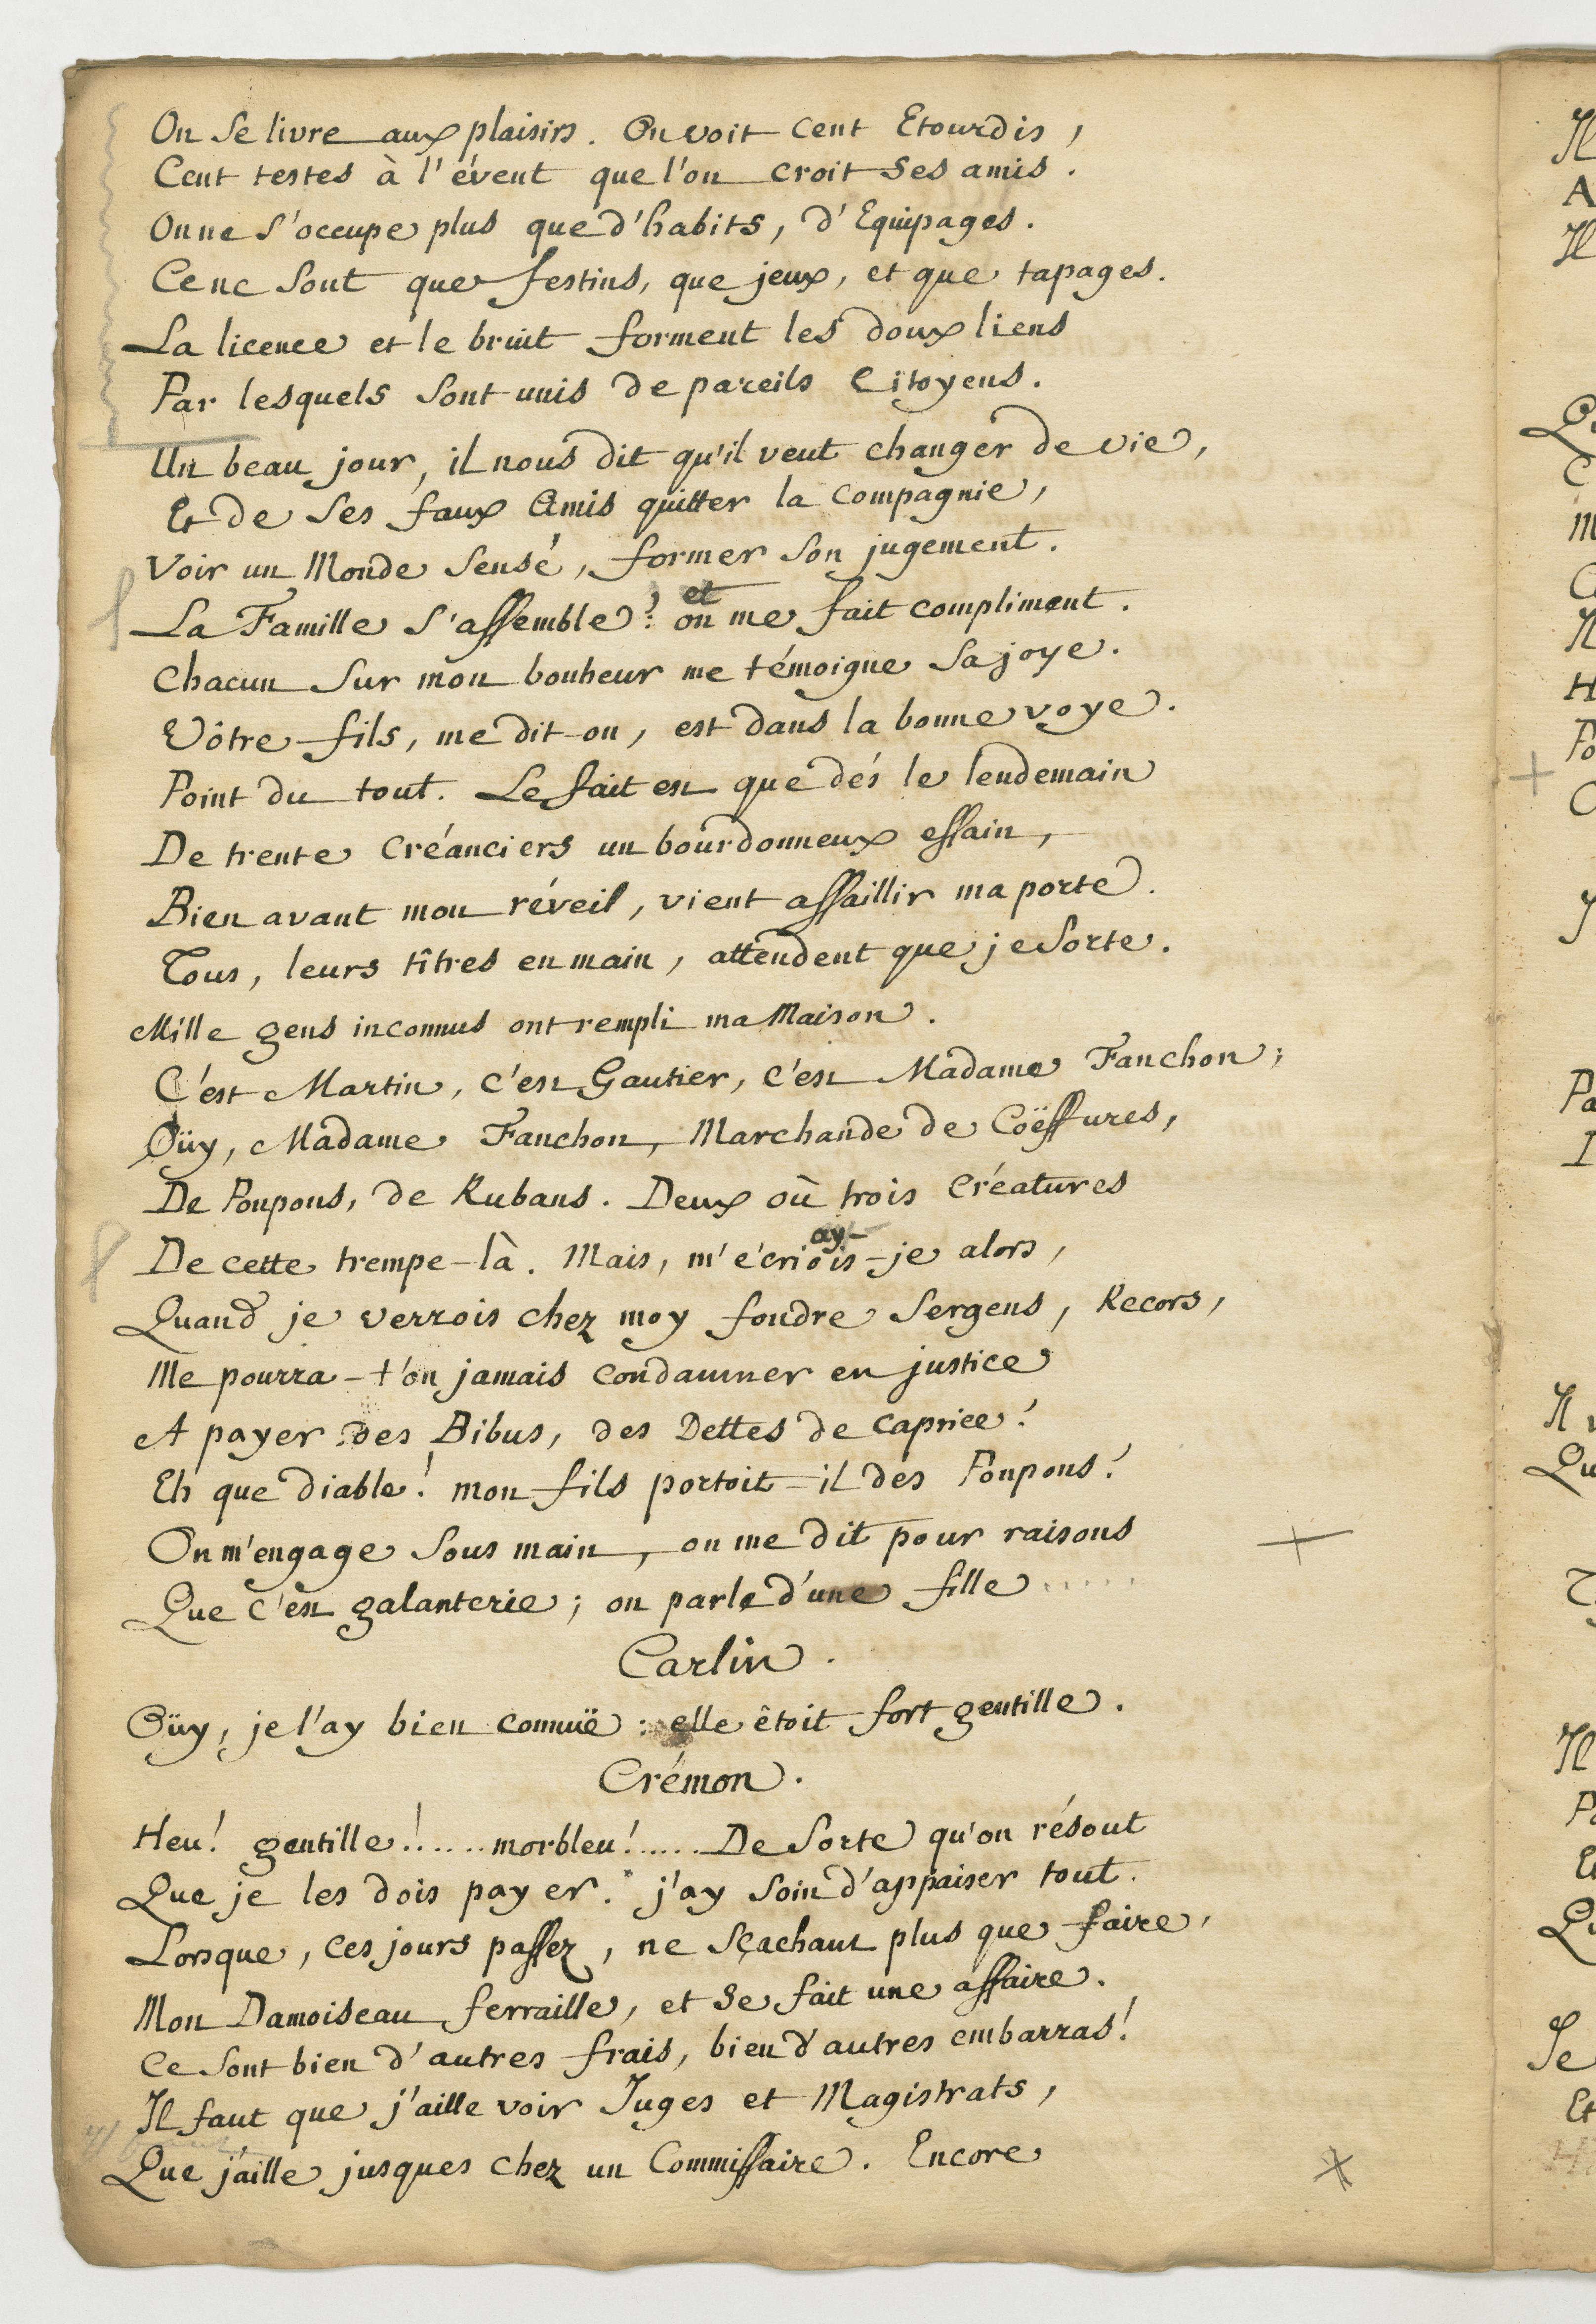 On se livre aux plaisirs. On voit cent Etourdis,
Cent testes à l'évent que l'on croit ses amis.
On ne s'occupe plus que d'habits, d'Equipages.
Ce ne sont que festins, que jeux, et que tapages.
La licence et le bruit forment les doux liens
Par lesquels sont unis de pareils Citoyens.
Un beau jour, il nous dit qu'il veut changer de vie,
Et de ses faux Amis quitter la compagnie,
Voir un Monde sensé, former son jugement.
et
La Famille s'assemble: on me fait compliment.
Chacun sur mon bonheur me témoigne sa joye.
Vôtre fils, me dit-on, est dans la bonne voye.
Point du tout. Le fait est que dés le lendemain
De trente Créanciers un bourdonneux essain,
Bien avant mon réveil, vient assaillir ma porte.
Tous, leurs tîtres en main, attendent que je sorte.
Mille gens inconnus ont rempli ma Maison.
C'est Martin, c'est Gautier, c'est Madame Fanchon;
Oüy, Madame Fanchon, Marchande de Coëffures,
De Poupons, de Rubans. Deux où trois Créatures
ay
De cette trempe-là. Mais, m'écriois-je alors,
Quand je verrois chez moy fondre Sergens, Recors,
Me pourra-t'on jamais condamner en justice
A payer des Bibus, des Dettes de caprice?
Eh que diable! mon fils portoit-il des Poupons?
On m'engage sous main, on me dit pour raisons
Que c'est galanterie; on parle d'une fille .....
Carlin.
Oüy, je l'ay bien connuë: elle êtoit fort gentille.
Crémon.
Heu! gentille!...... morbleu!..... De sorte qu'on résout
Que je les dois payer. j'ay soin d'appaiser tout.
Lorsque, ces jours passez, ne sçachant plus que faire,
Mon Damoiseau ferraille, et se fait une affaire.
Ce sont bien d'autres frais, bien d'autres embarras!
Il faut que j'aille voir Juges et Magistrats,
Que j'aille jusques chez un Commissaire. Encore